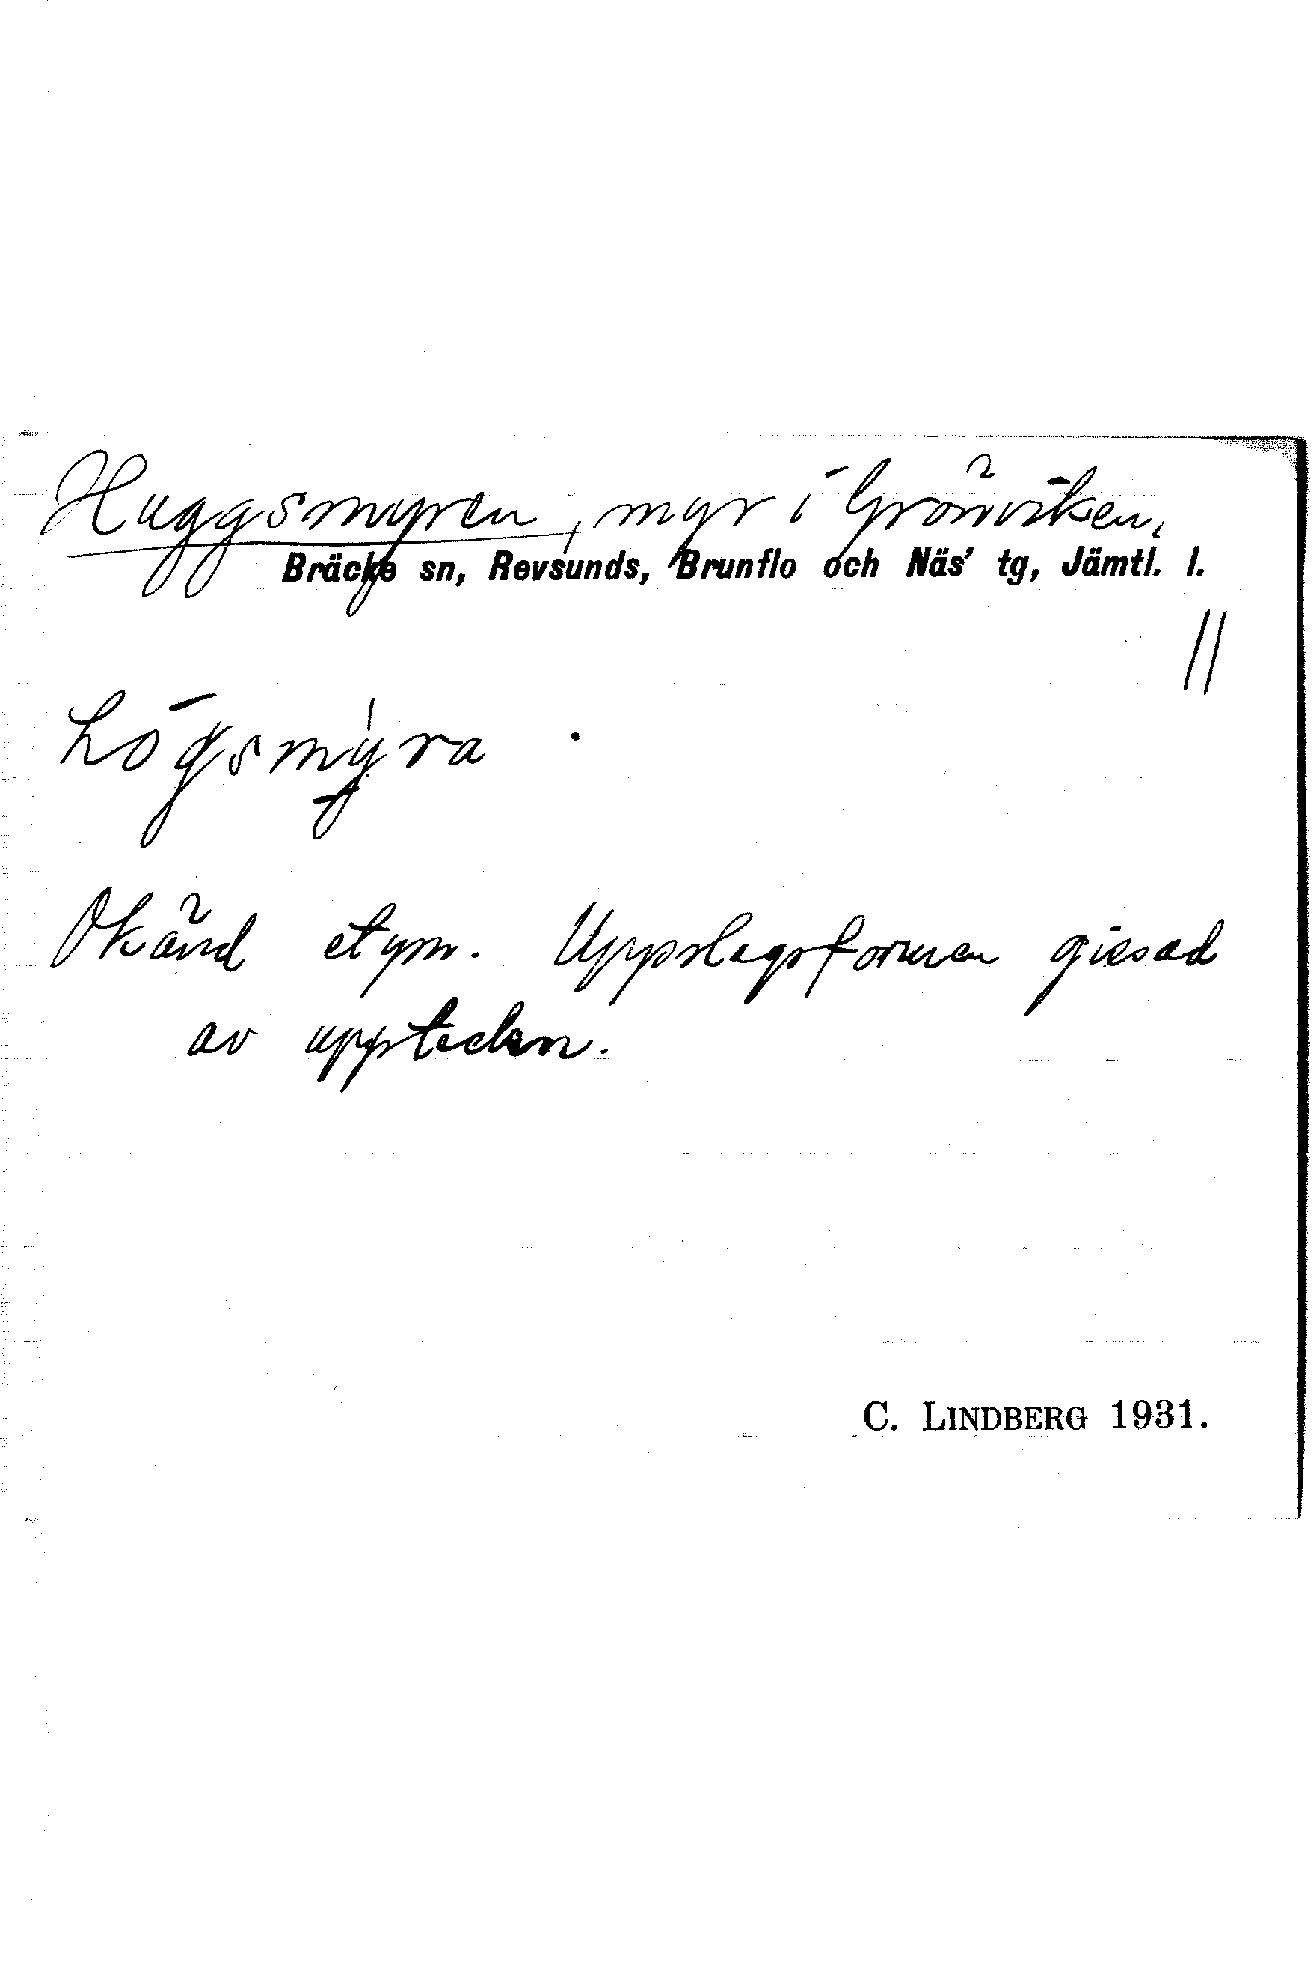 Huggsmyren, myr i Grönviken,
Bräcke sn, Revsunds, Brunflo och Näs' tg, Jämtl. l.
11
Okänd etym. Uppslagsformen gissad
av uppteckn.
C. LINDBERG 1931.